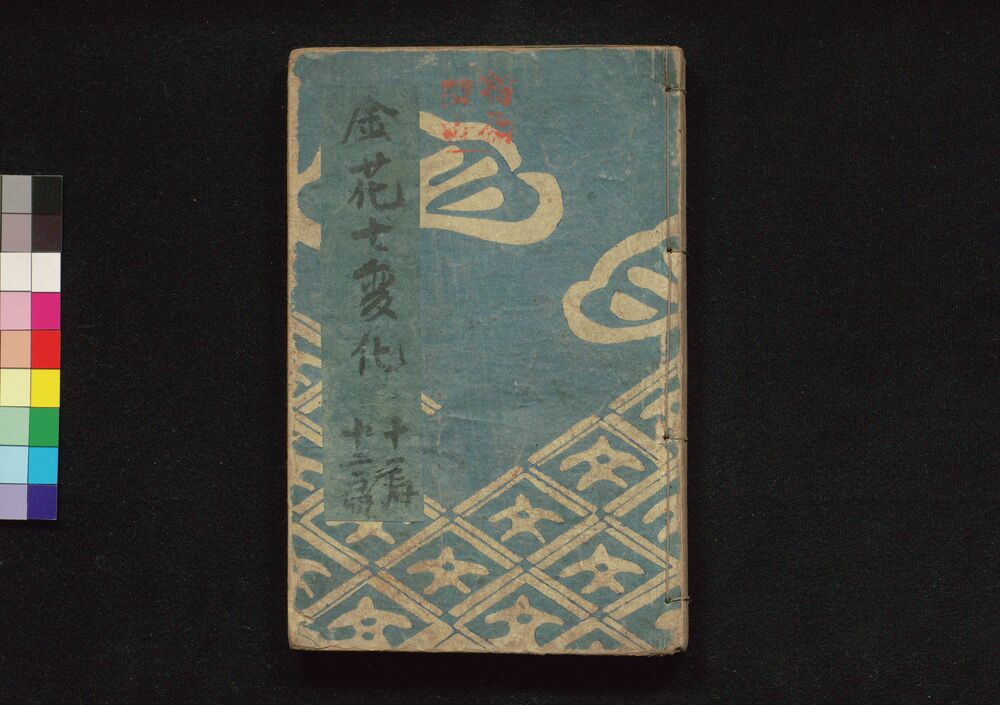 金花七変化
十一編
十二編